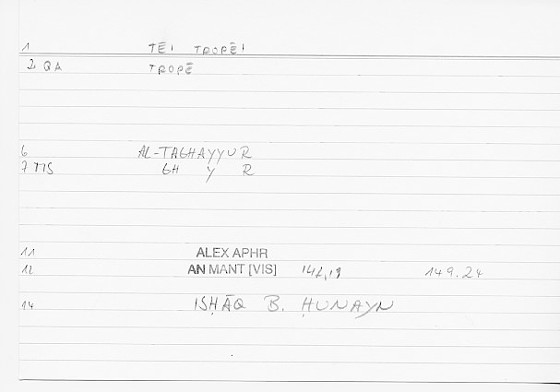 1 TĒI TROPĒI
2 QA TROPĒ
6 AL-TAGHAYYUR
7 MS GH Y R
11 ALEX APHR
12 AN MANT [VIS] 142,19 149.24
14 ISḤĀQ B. ḤUNAYN